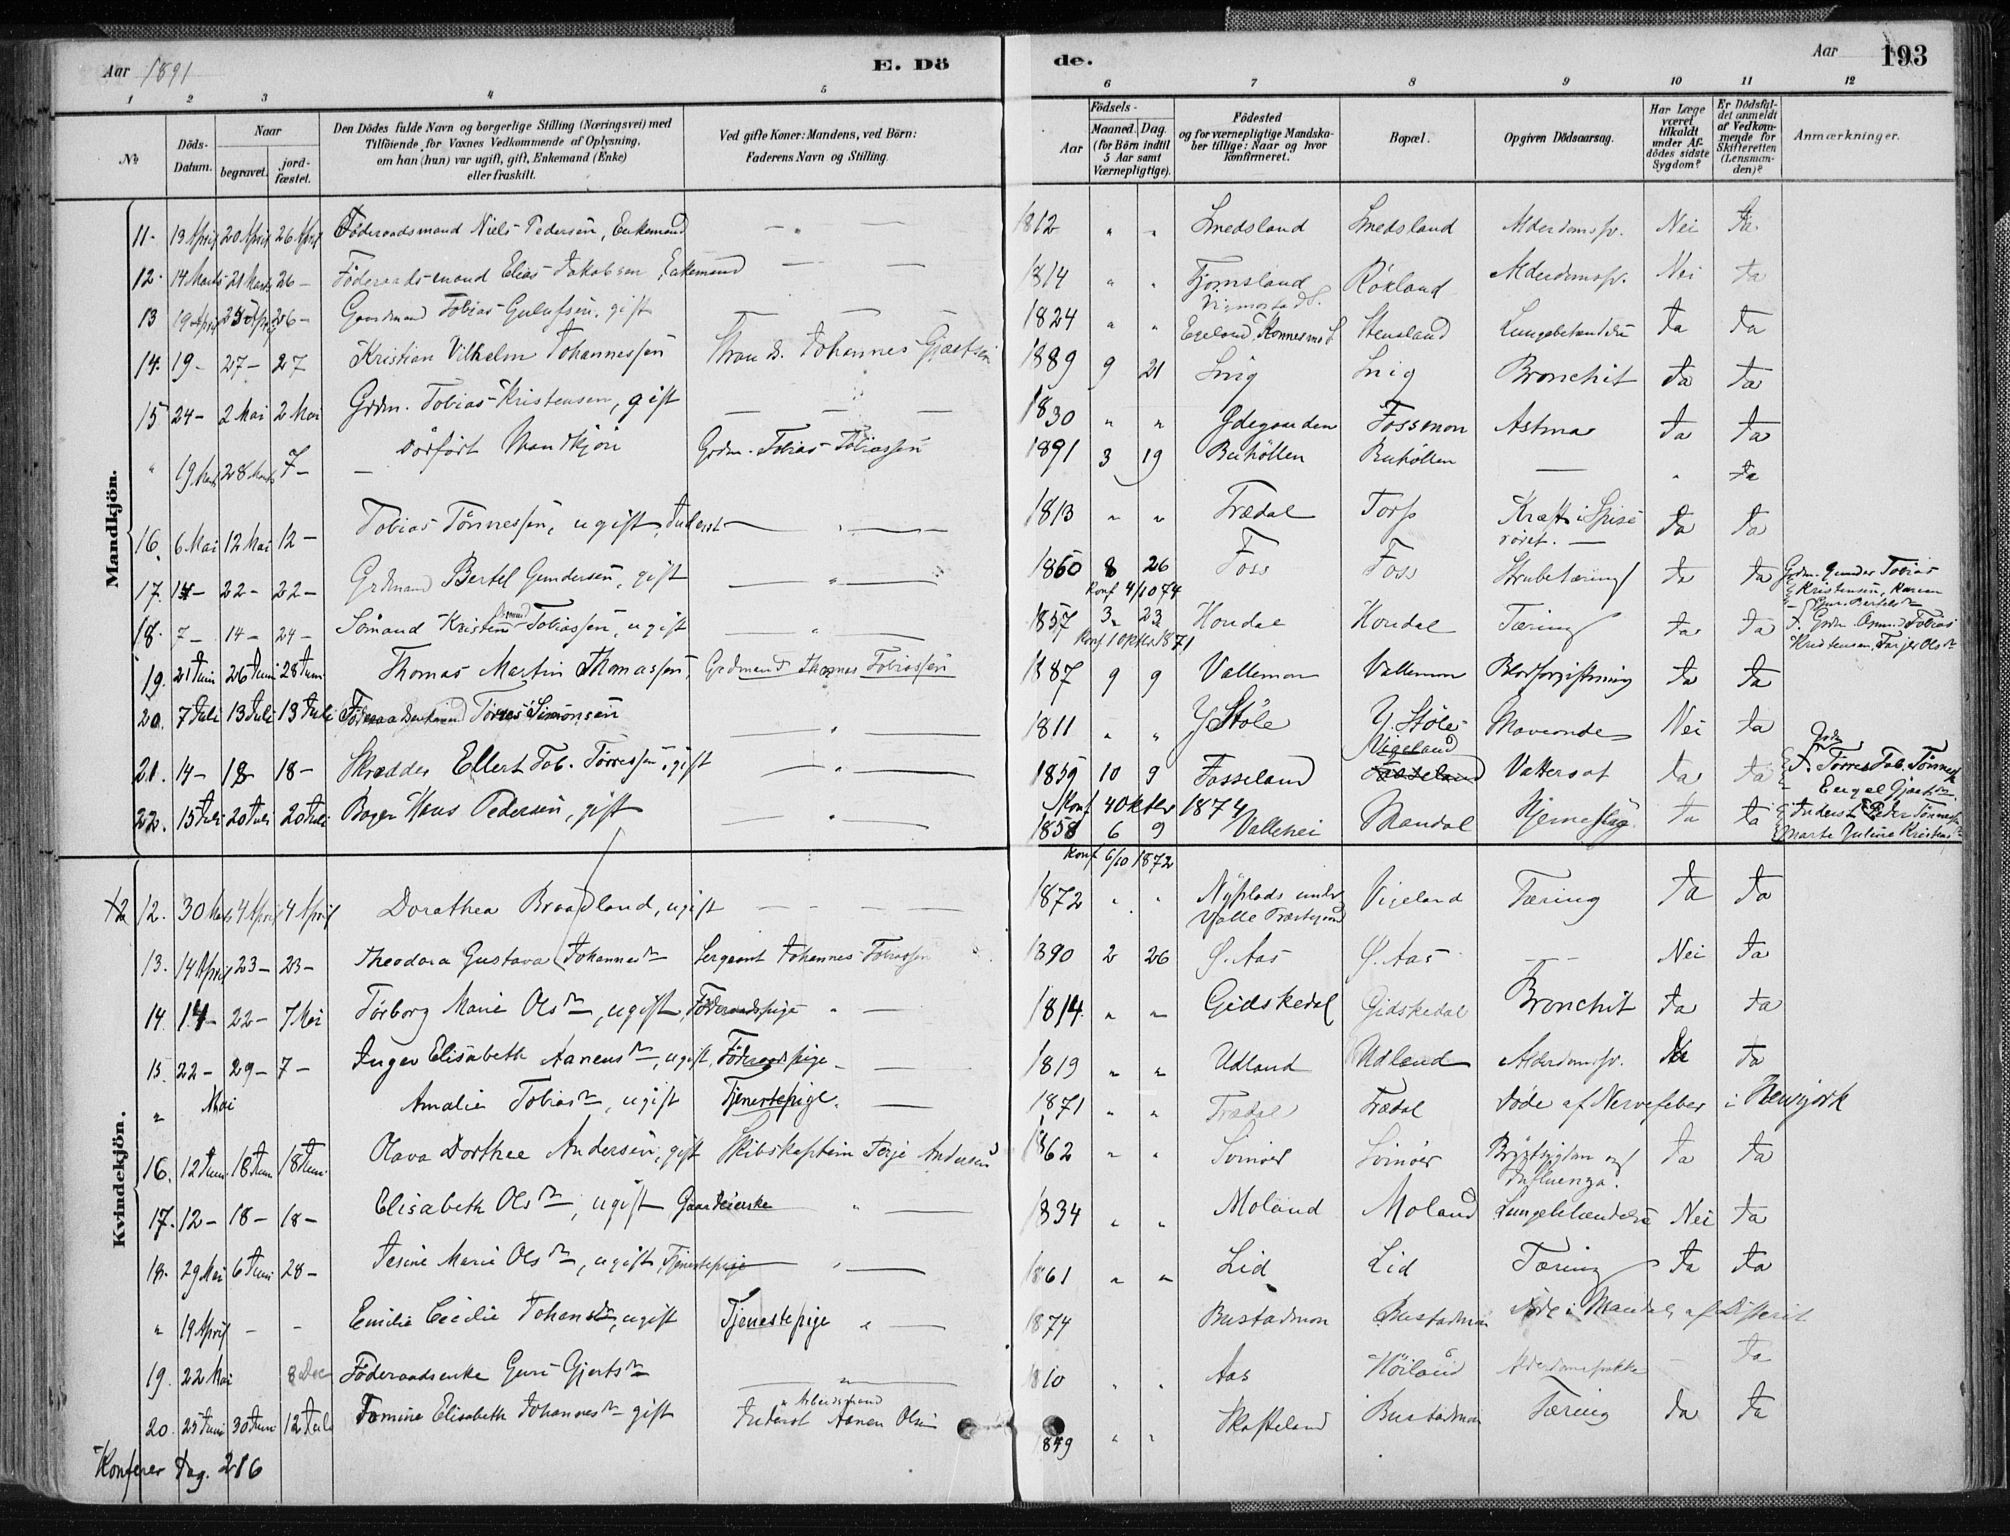 Aar 1891 E. Dö de. Aar 193
1 2 3 4 5 6 7 8 9 10 11 12
№ Döds-Datum. Naar begravet. jord-fæstet. Den Dödes fulde Navn og borgerlige Stilling (Næringsvei) med Tilföiende for Voxnes Vedkommende af Oplysning, om han (hun) var ugift, gift, Enkemand (Enke) eller fraskilt. Ved gifte Koner: Mandens, ved Börn: Faderens Navn og Stilling. Födsels- Aar Maaned. Dag. (for Börn indtil 5 Aar samt Værnepligtige). Födested og for værnepligtige Mandskaber tillige: Naar og hvor konfirmeret. Bopæl. Opgiven Dödsaarsag. Har Læge været tilkaldt under Afdödes sidste Sygdom? Er Dödsfaldet anmeldt af Vedkommende for Skifteretten (Lensmanden)? Anmærkninger.
Mandkjön.
11. 13 April 20 April 26 April Föderaadsmand Niels Pedersen, Enkemand 1812 " " Smedsland Smedsland Alderdomssv. Nei Ja
12. 14 Marts 21 Marts 26 – Föderaadsmand Elias Jakobsen, Enkemand 1814 " " Fjomsland Vigmostad S. Rökland Alderdomssv. Nei Ja
13 19 April 25 April 26 – Gaardmand Tobias Gulufsen, gift 1824 " " Egeland, Konnesmo S. Steusland Lungebetændelse Ja Ja
14. 19 – 27 – 27 Kristian Vilhelm Johannessen Johannes Gjertsen 1889 9 21 Snig Snig Bronchit Ja Ja
15 24 – 2 Mai 2 Mai Grdm. Tobias Kristensen, gift 1830 " " Ydegaarden Fossmon Astma Ja Ja
" 19 Marts 28 Marts 7 – Dödfödt Mandkjön Grdm. Tobias Tobiassen 1891 3 19 Buhölten Buhölten — " Ja
16. 6 Mai 12 Mai 12 – Tobias Tönnessen, ugift, Inderst 1813 " " Trædal Torp Kræft i Spiseröret. Ja Ja
17. 14 – 22 – 22 – Grdmand Bertel Gundersen, gift 1860 8 26 Foss Foss Strubetæring Ja Ja Grdm. Gunder Tobias Kristensen, Karen
Konf 4/10 74
18. 7 – 14 – 24 – Sömand Kristen Tobiassen, ugift 1857 3 23 Hondal Hondal Tæring Ja Ja F. Grdm. Tobias Kristensen, Tarjer Olsdr
Konf 1 Oktbr. 1871
19. 21 Juni 26 Juni 28 Juni Thomas Martin Thomassen, Grdmand Thomas Tobiassen 1887 9 9 Vallemon Vallemon Blodforgiftning Ja Ja
20. 7 Juli 13 Juli 13 Juli Torres Simonsen 1811 " " Y. Stöle Y. Stöle Maveonde Nei Ja
21. 14 – 18 18 – Skrædder Ellert Tob. Törressen, gift 1859 10 9 Fosseland Vigeland Vattersot Ja Ja F. Torres Tob. Tönnes
Konf 4 Oktbr 1874
22. 15 Juli 20 Juli 20 Juli Bager Hans Pedersen, gift 1858 6 9 Vallehei Mandal Hjerneslag Ja Ja Inderst Peder Tönnes Marte Juline Kristens
Konf 6/10 1872
Kvindekjön.
12. 30 Marts 4 April 4 April Dorathea Braadland, ugift 1872 " " Nyplads under Valle Vigeland Tæring Ja Ja
13. 14 April 23 – 23 – Theodora Gustava Johannesdr Sergeant Johannes Tobiassen 1890 2 26 Ö. Aas Ö. Aas – – Nei Ja
14. 14 – 22 – 7 Mai Torborg Marie Olsdr, ugift, Föderaadspige 1814 " " Gidskedal Gidskedal Bronchit Ja Ja
15. 22 – 29 – 7 – Inger Elisabeth Aanensdr, ugift, Föderaadspige 1819 " " Udland Udland Alderdomssv. Ja
" Mai Amalie Tobiasdr, ugift Tjenestepige. 1871 " " Trædal Trædal Döde af Nervefeber i Newyork
16. 12 Juni 18 Juni 18 Juni Olava Dorthee Andersen, gift Skibskaptein Terje Andersen 1862 " " Svinöer Svinöer Brystsygdom og Influenza. Ja Ja
17. 12 – 18 – 18 – Elisabeth Olsdr, ugift Gaardeierske 1834 " " Moland Moland Lungebetændelse Nei Ja
18. 29 Mai 6 Juni 28 – Jesine Marie Olsdr, ugift, Tjenestepige 1861 " " Lid Lid Tæring Ja Ja
" 19 April – – Emilie Cecilie Johansdr, ugift Tjenestepige 1874 Bustadmon Bustadmon Döde i Mandal af Difterit
19. 22 Mai 8 Dec Föderaadsenke Guri Gjertsdr 1810 " " Aas Höiland Alderdomssvakke – Ja
20. 25 Juni 30 Juni 12 Juli Tomine Elisabeth Johannesdr gift Arbeidsmand Inderst Aanen Olsen 1849 " " Skofteland Bustadmon Tæring Ja Ja
Konferer Pag. 216